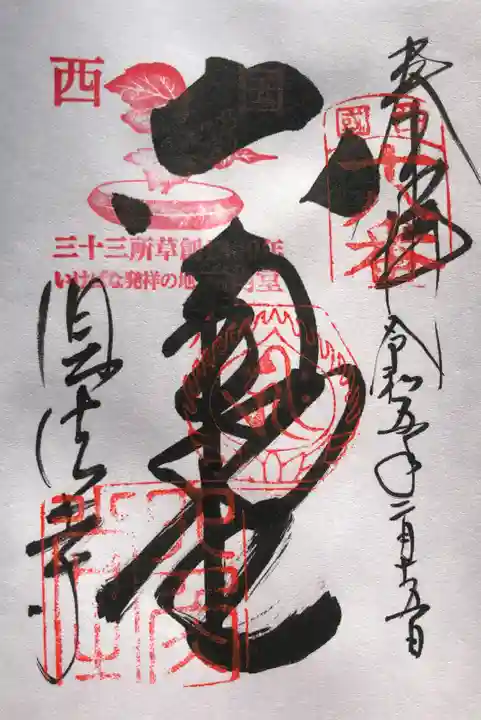 奉拝
西國十八番
令和五年二月十五日
六角堂
西国
三十三所草創1300年
いけばな発祥の地 六角堂
頂法寺